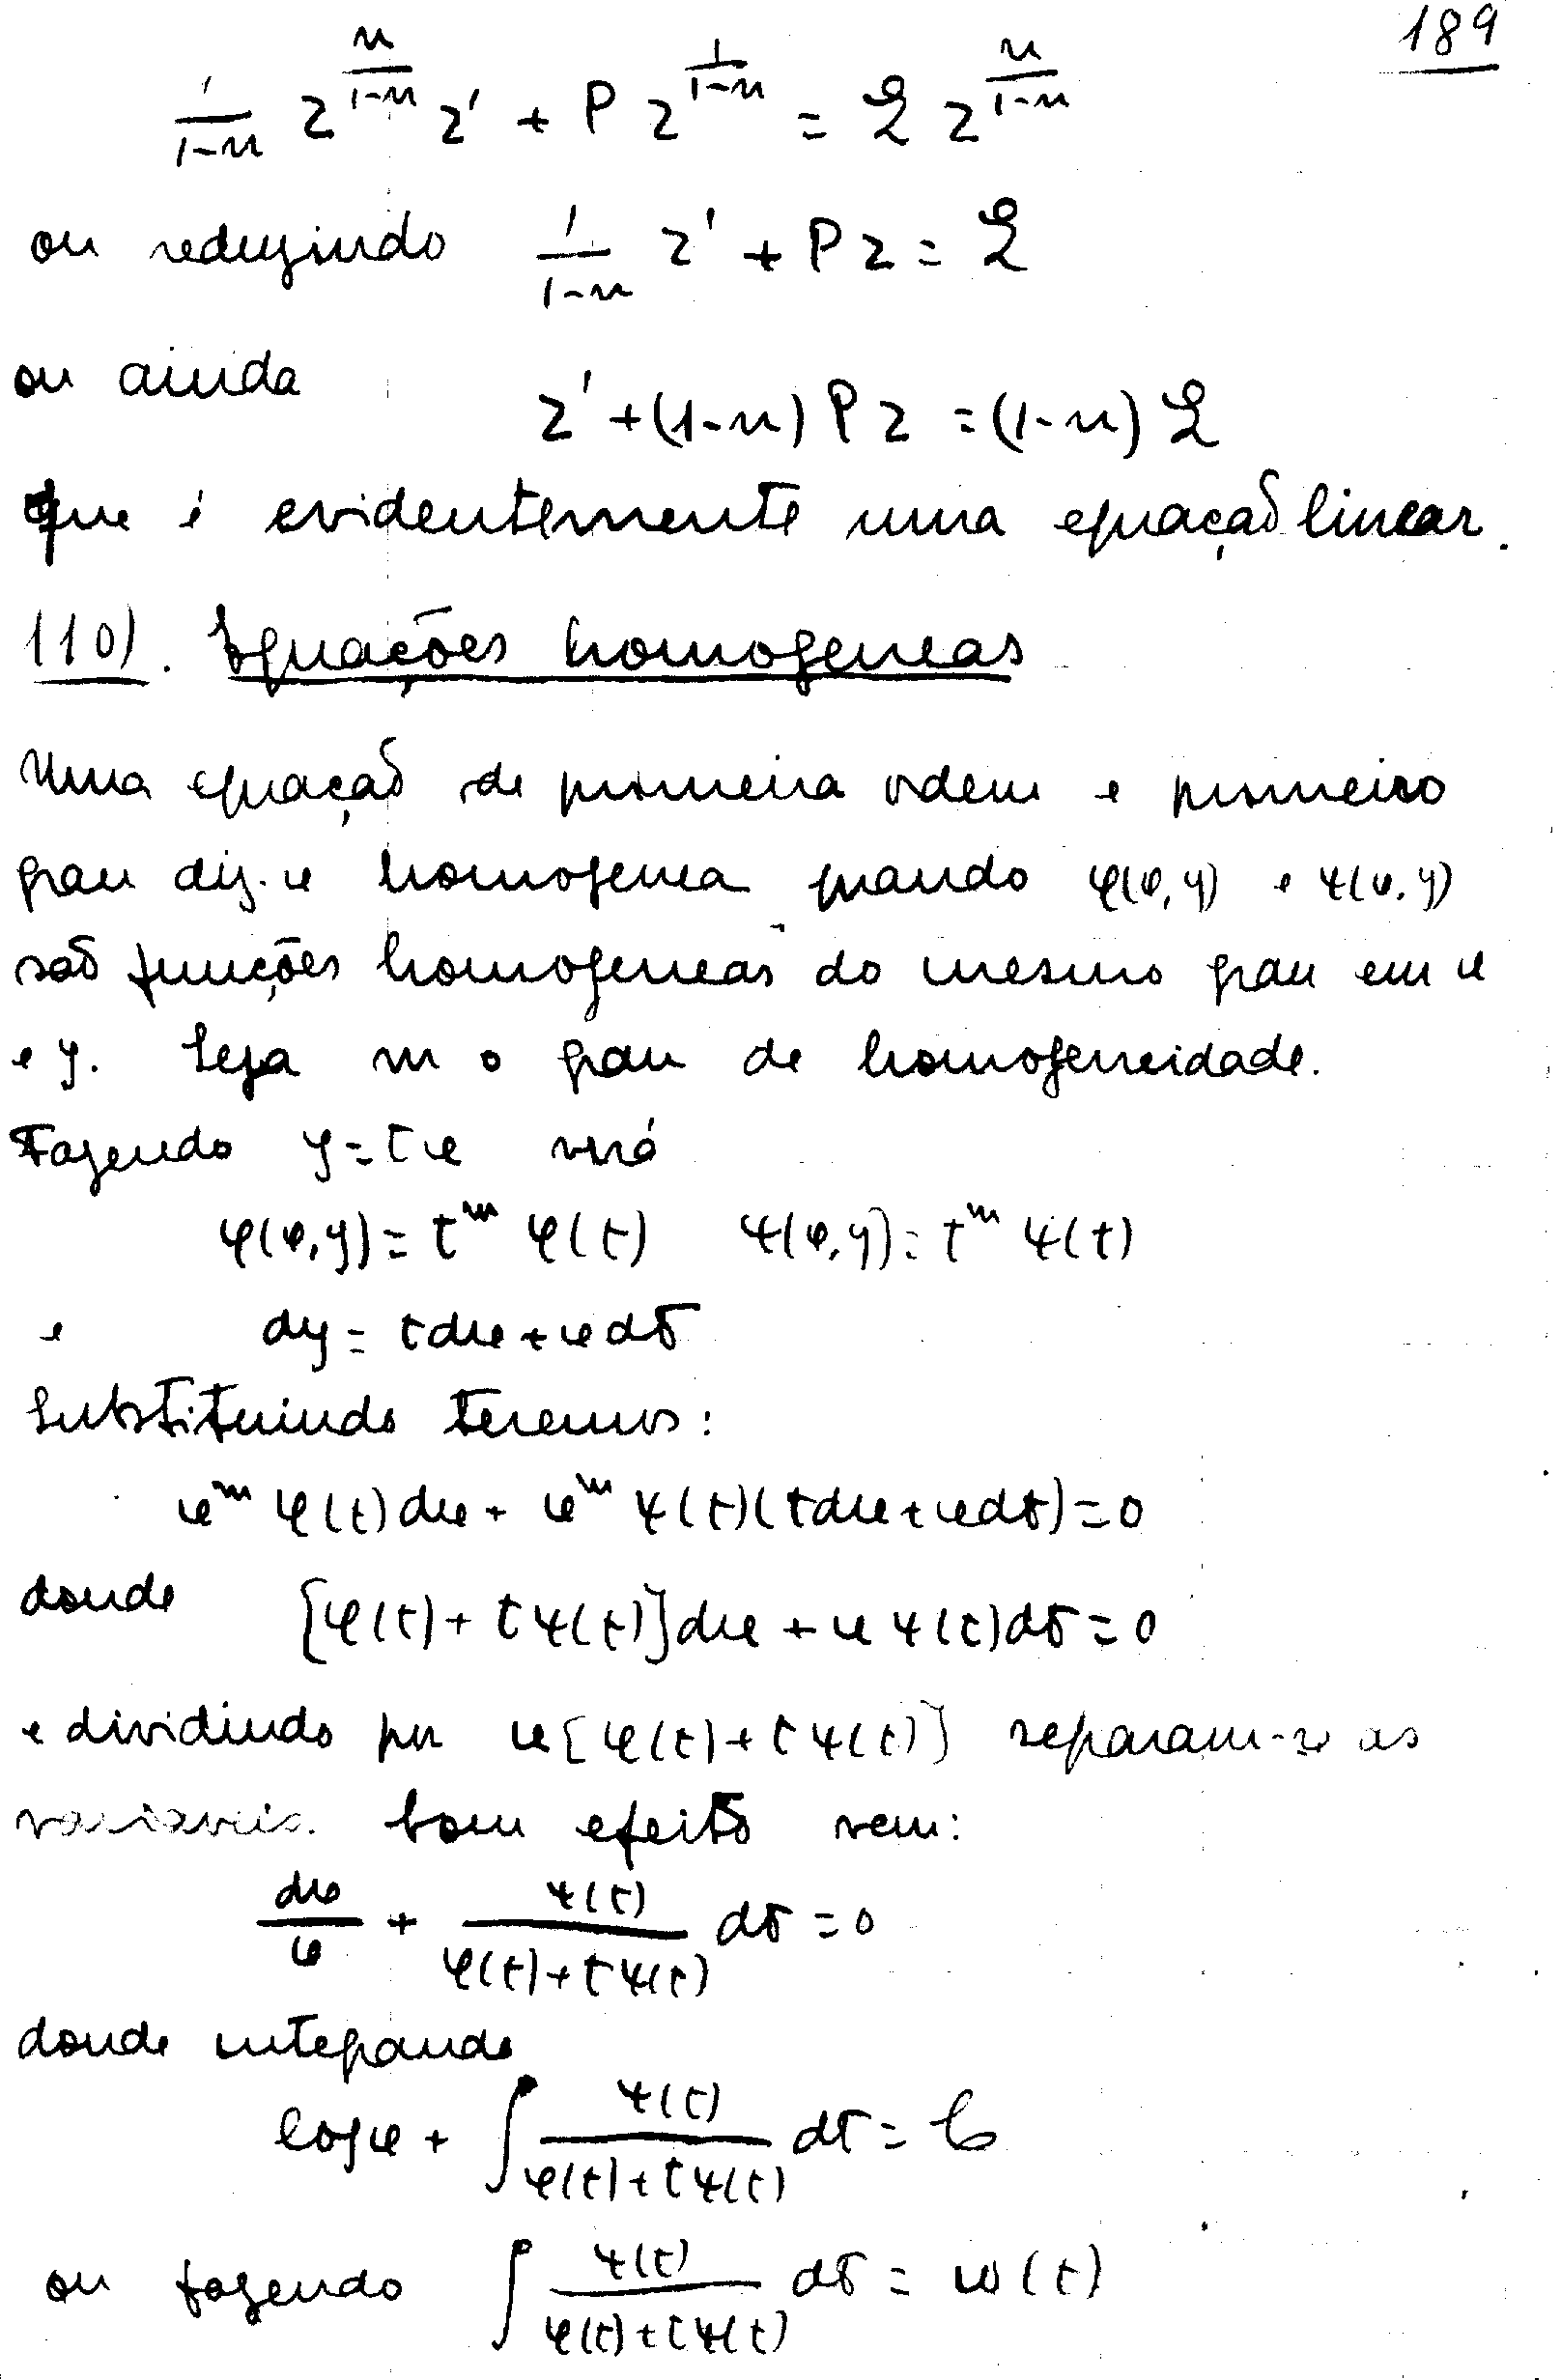 189
1/(1-n) z^(n/(1-n)) z' + P z^(1/(1-n)) = Q z^(n/(1-n))
ou reduzindo 1/(1-n) z' + P z = Q
ou ainda
z' + (1-n) P z = (1-n) Q
que é evidentemente uma equação linear.
110). Equações homogeneas
Uma equação de primeira ordem e primeiro
grau diz-se homogenea quando φ(x,y) e ψ(x,y)
são funções homogeneas do mesmo grau em x
e y. Seja m o grau de homogeneidade.
Fazendo y = tx virá
φ(x,y) = t^m φ(t) ψ(x,y) = t^m ψ(t)
e dy = tdx + xdt
Substituindo teremos:
x^m φ(t)dx + x^m ψ(t)(tdx + xdt) = 0
donde [φ(t) + tψ(t)]dx + xψ(t)dt = 0
e dividindo por x[φ(t) + tψ(t)] separam-se as
variaveis. Com efeito vem:
dx/x + ψ(t)/(φ(t) + tψ(t)) dt = 0
donde integrando
log x + ∫ ψ(t)/(φ(t) + tψ(t)) dt = C
ou fazendo ∫ ψ(t)/(φ(t) + tψ(t)) dt = ω(t)